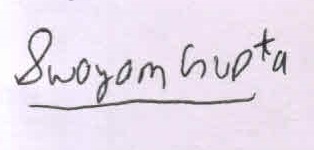 Swoyam Gupta